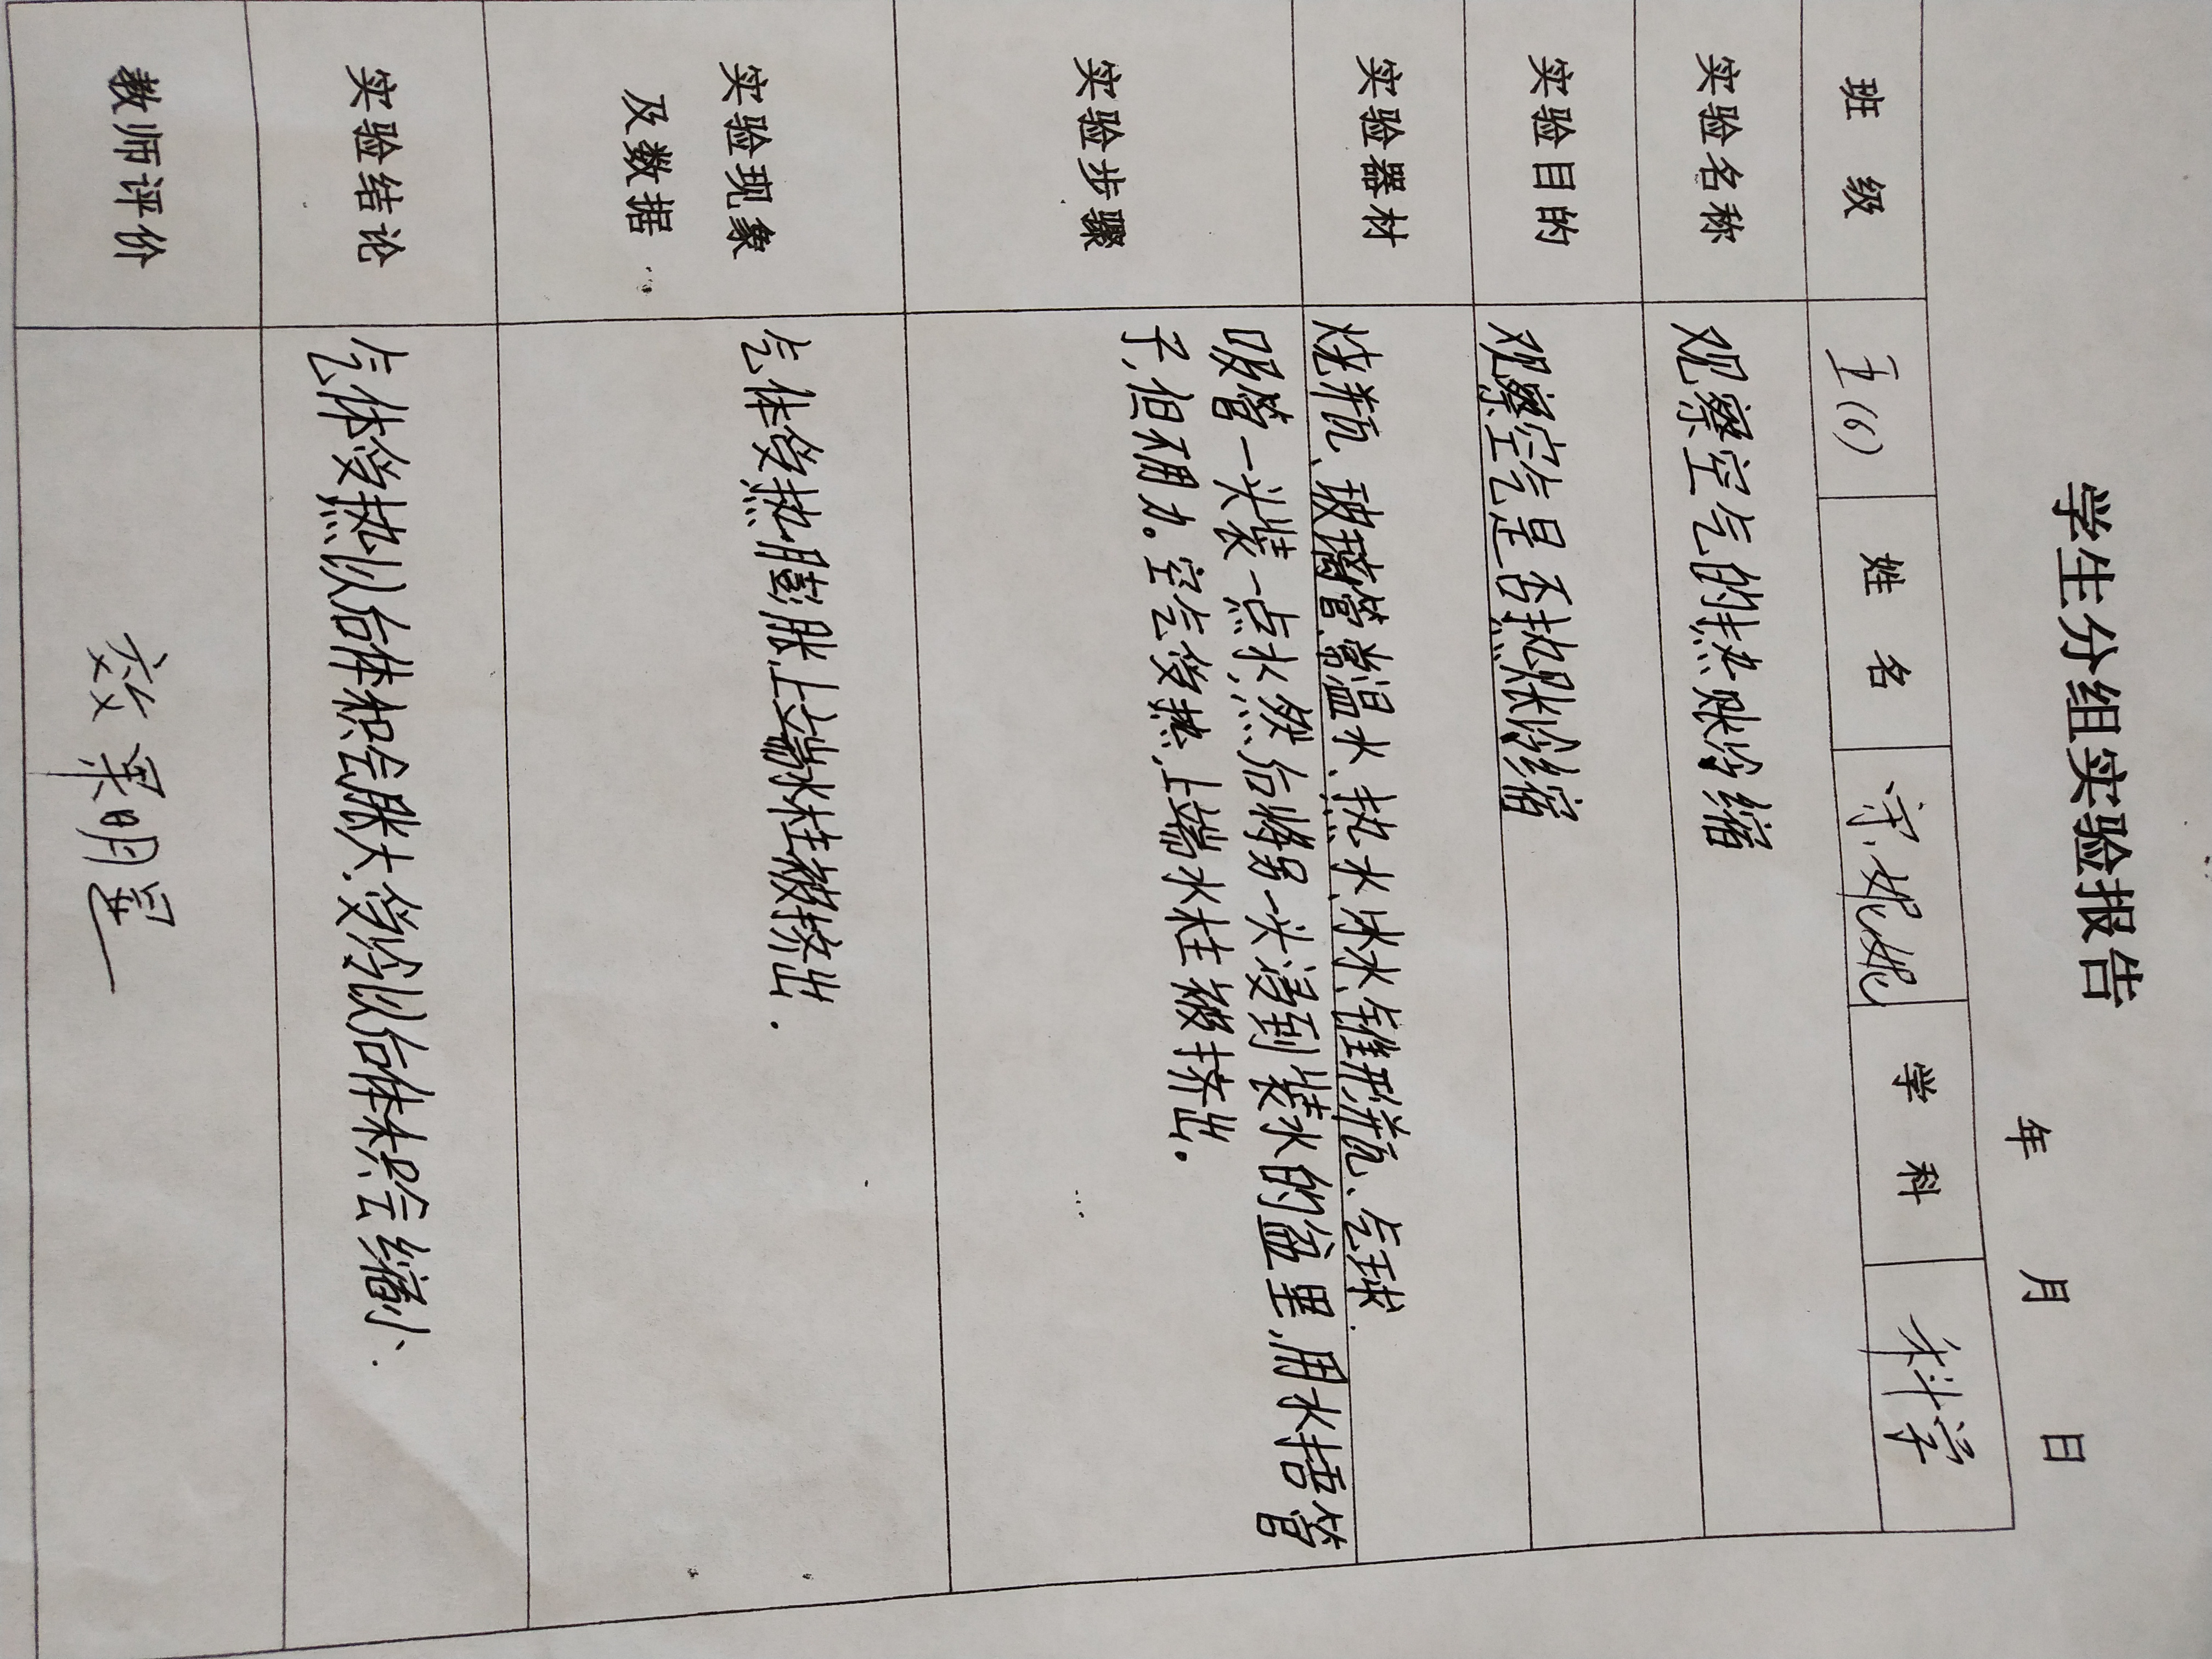 学生分组实验报告
年 月 日
班 级 五(6) 姓 名 妮妮 学 科 科学
实验名称 观察空气的热账冷缩
实验目的 观察空气是否热账冷缩
实验器材 烧瓶、玻璃管、常温水、热水、冰水、锥形瓶、气球.
实验步骤 吸管一头装一点水,然后将另一头浸到装水的盆里,用水捂管
子,但不用力。空气受热,上端水柱被挤出。
实验现象
及数据 气体受热膨胀,上端水柱被挤出.
实验结论 气体受热以后体积会胀大.受冷以后体积会缩小.
教师评价 效果明显